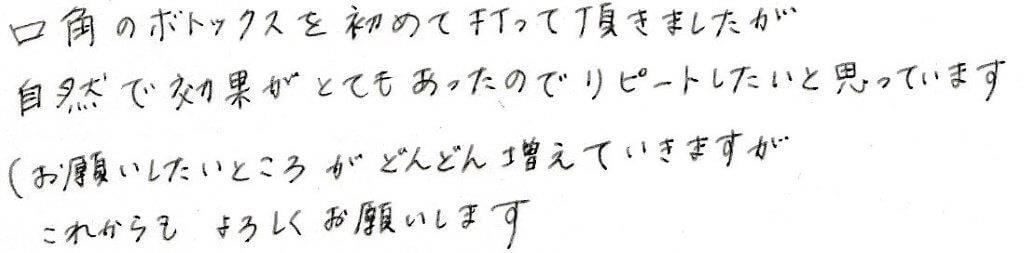 口角のボトックスを初めて打って頂きましたが
自然で効果がとてもあったのでリピートしたいと思っています
(お願いしたいところがどんどん増えていきますが
これからも よろしくお願いします